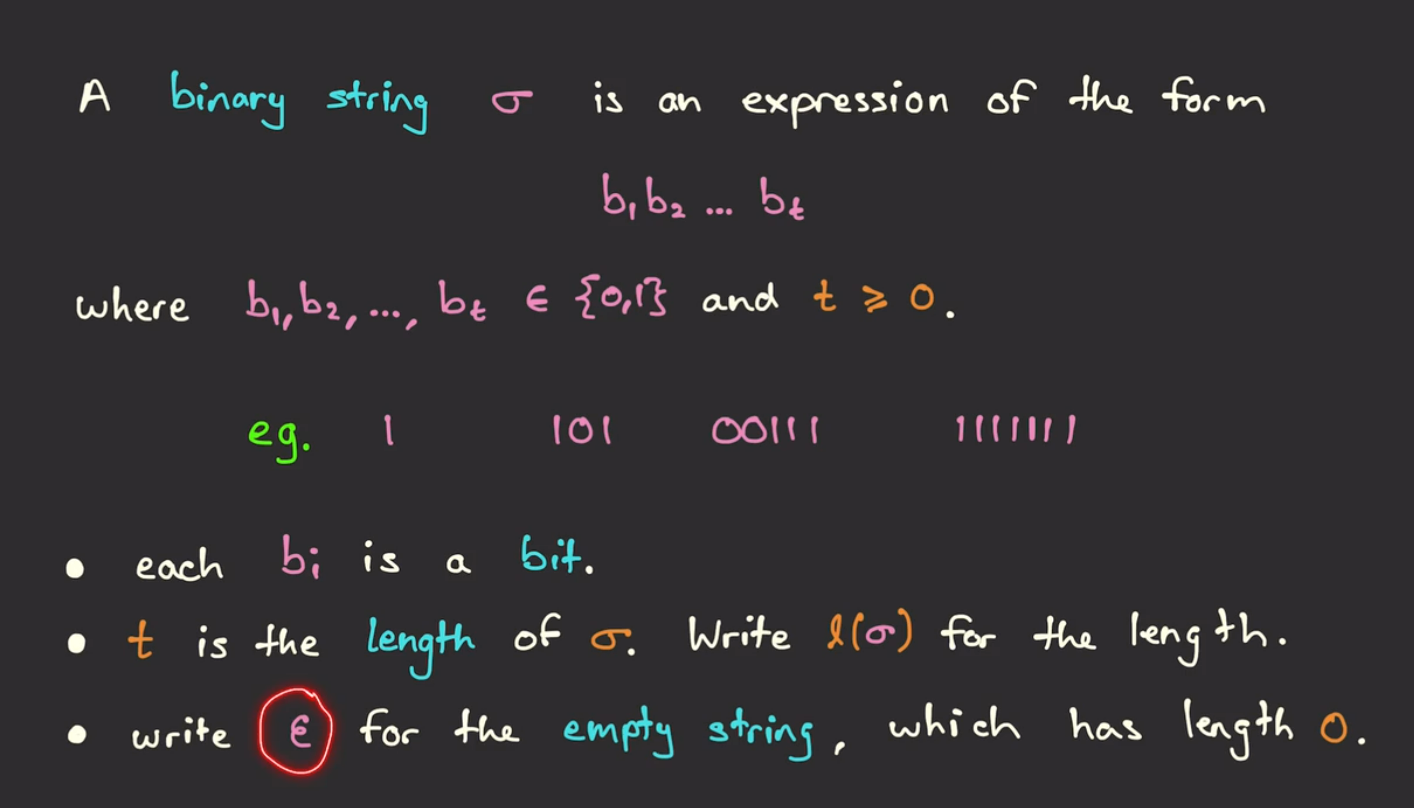 A binary string σ is an expression of the form
b₁b₂ ... bₜ
where b₁, b₂, ..., bₜ ∈ {0,1} and t ⩾ 0.
eg. 1 101 00111 11111111
• each bᵢ is a bit.
• t is the length of σ. Write l(σ) for the length.
• write ε for the empty string, which has length 0.